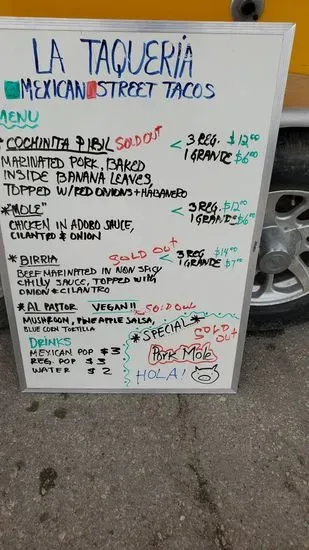 LA TAQUERIA
MEXICAN STREET TACOS
MENU
* COCHINITA PIBIL SOLD OUT < 3 REG. $12.00
1 GRANDE $6.00
MARINATED PORK, BAKED
INSIDE BANANA LEAVES,
TOPPED W/RED ONIONS + HABANERO
*"MOLE" < 3 REG. $12.00
1 GRANDE $6.00
CHICKEN IN ADOBO SAUCE,
CILANTRO & ONION
* BIRRIA SOLD OUT < 3 REG $14.00
1 GRANDE $7.00
BEEF MARINATED IN NON SPICY
CHILLY SAUCE, TOPPED WITH
ONION & CILANTRO
* AL PASTOR VEGAN!! SOLD OUT
MUSHROOM, PINEAPPLE SALSA,
BLUE CORN TORTILLA
*SPECIAL* SOLD OUT
Pork Mole
HOLA!
DRINKS
MEXICAN POP $3
REG. POP $3
WATER $2